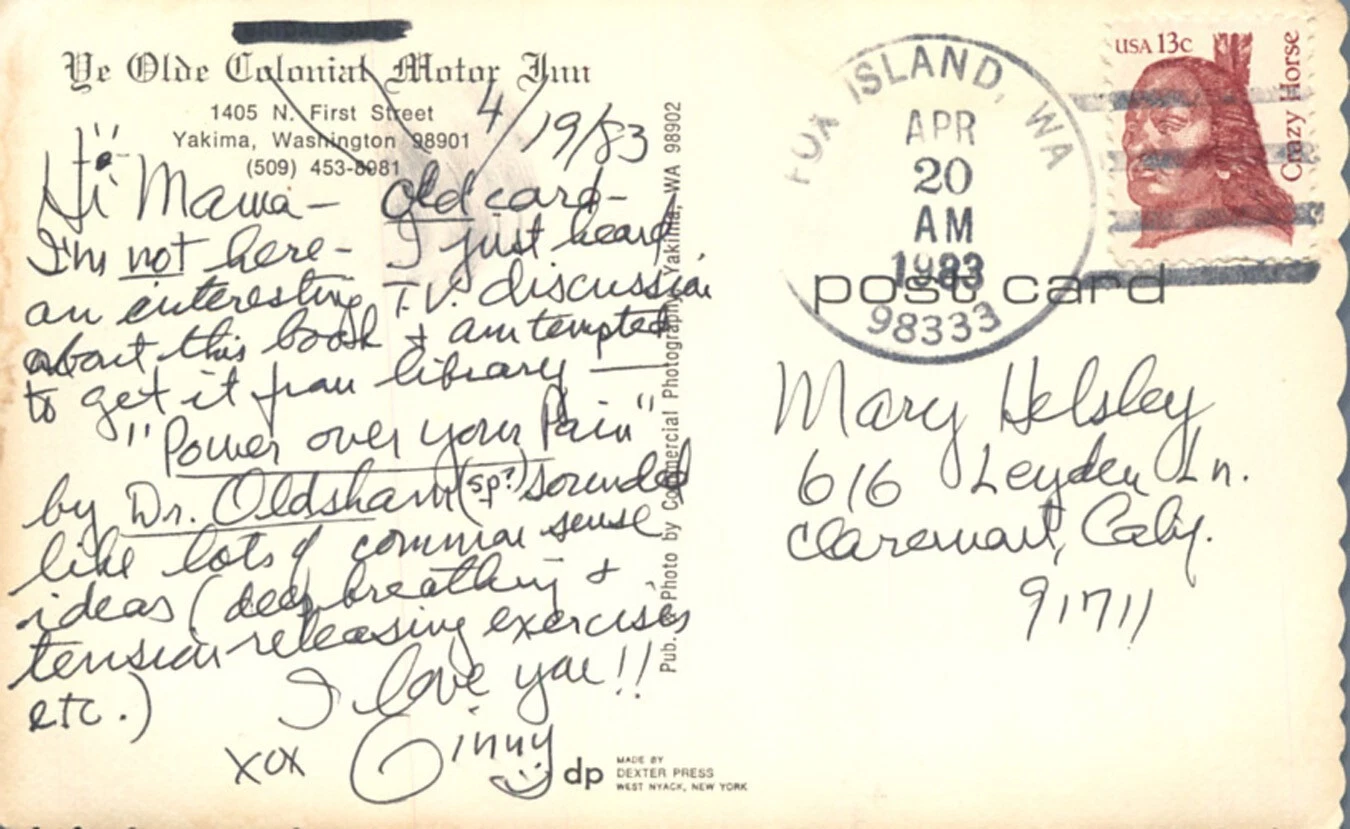 Ye Olde Colonial Motor Inn
1405 N. First Street
Yakima, Washington 98901
(509) 453-8981
4/19/83
Hi Mama - old card -
I'm not here - I just heard
an interesting T.V. discussion
about this book & am tempted
to get it from library —
"Power over your Pain"
by Dr. Oldsham (sp?) sounded
like lots of common sense
ideas (deep breathing &
tension-releasing exercises
etc.)
I love you!!
xox Ginny
Pub. & Photo by Commercial Photography, Yakima, WA 98902
dp
MADE BY
DEXTER PRESS
WEST NYACK, NEW YORK
FOX ISLAND, WA
APR
20
AM
1983
98333
USA 13c
Crazy Horse
post card
Mary Helsley
616 Leyden Ln.
Claremont, Calif.
91711